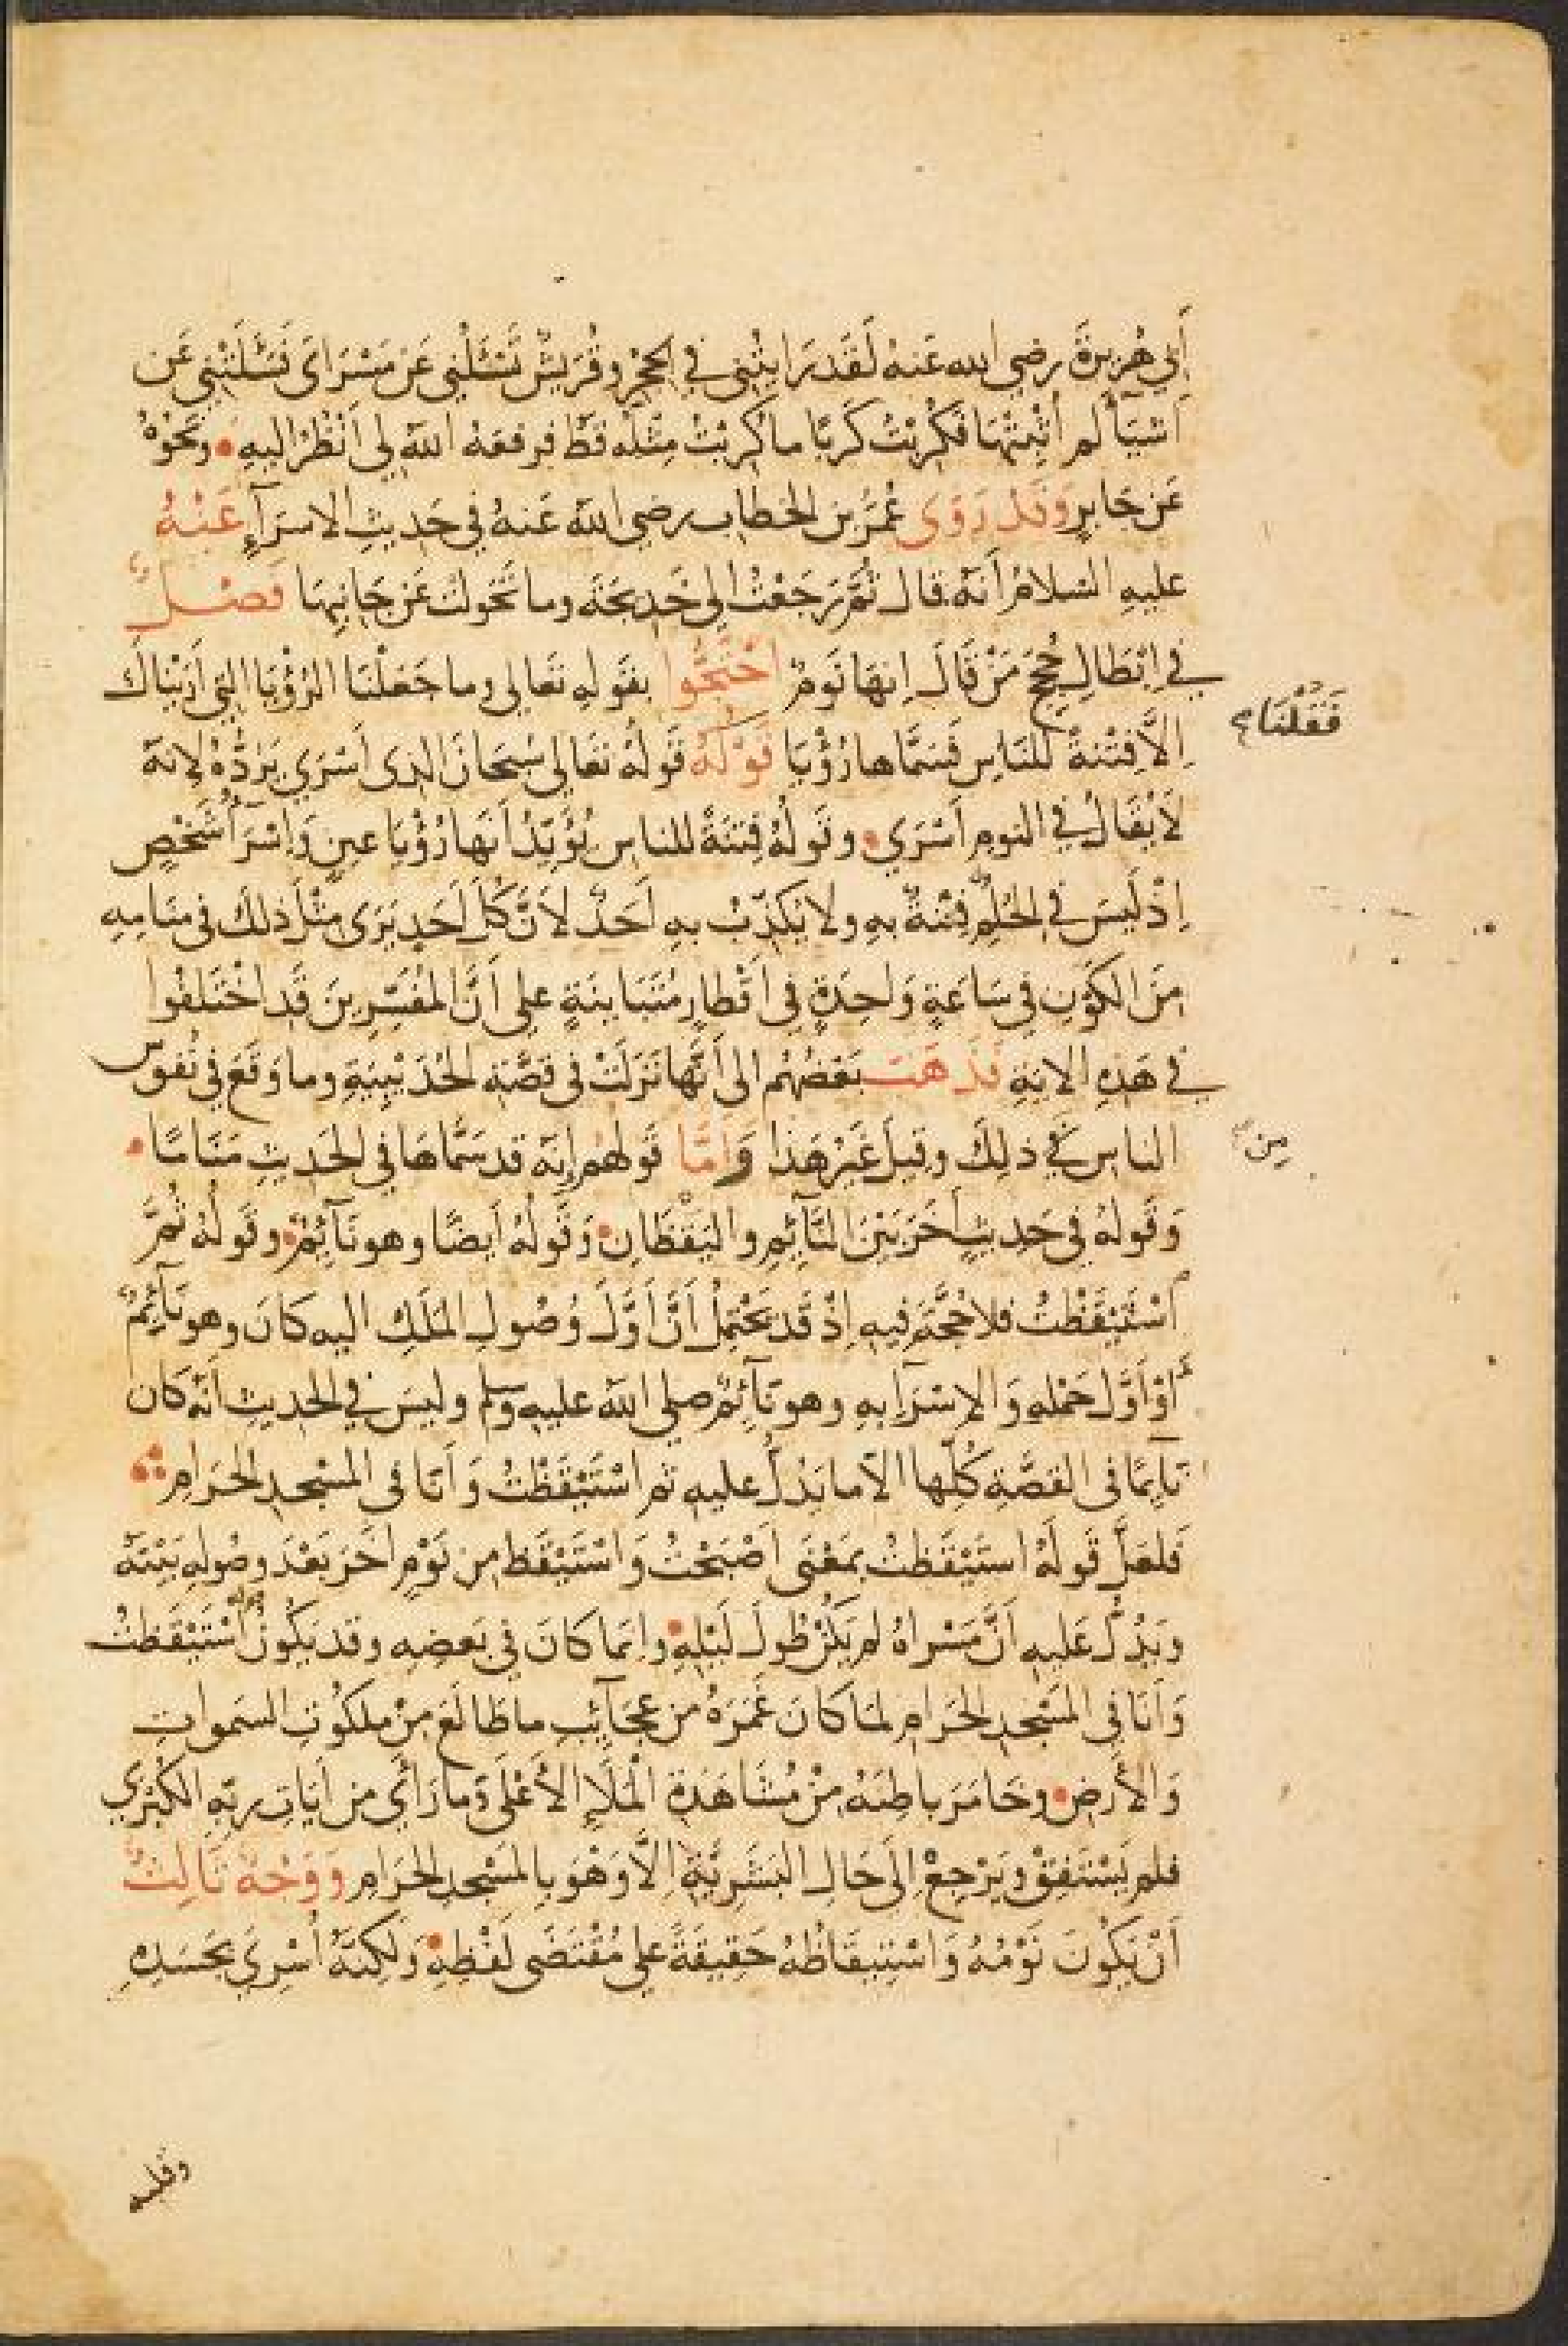 أَبِي هُرَيْرَةَ رضي الله عَنهُ لَقَد رَايْتُنِي فِي الحِجْرِ وقُرَيْشٌ تَسْئَلُنِي عَنْ مَسْرَايَ فَسَئَلَتْنِي عَن
اشيَآ لم أُثْبِتْهَا فَكُرِبْتُ كَربًا ما كُرِبْتُ مِثْلَهُ قَطّ فرفعَهُ اللهُ لي اَنْظُرُ اليهِ • ونَحْوُهُ
عَن جَابِرٍ وَقَد رَوَى عُمَرُ بن الخطاب رضي الله عَنهُ في حَديثِ الاسرَآءِ عَنْهُ
عليهِ السّلامُ أنّهُ قال ثُمَّ رَجَعْتُ الى خَدِيجَةَ وما تَحَولَتْ عَن جَانِبِهَا فَصْلٌ
في اِبْطَالِ حُجَجِ مَنْ قَالَ اِنهَا نَومٌ احْتَجُّوا بقَولِهِ تَعَالى وما جَعَلْنَا الرُّؤْيَا التي أَرَيْنَاكَ
فَقُلْنَا
اِلاَّ فِتْنةً للنَاسِ فَسَمَّاها رُؤْيَا قَوْلُهُ قَولُهُ تعَالى سُبحَانَ الذي أسْرَى يَرُدُّهُ لِانهُ
لَا يُقَالُ في النومِ أَسْرَي • وقَولُهُ فِتنَةً للناسِ يُؤَيّدُ أَنها رُؤْيَا عينٍ وَاِسْرَآءُ شَخْصٍ
اِذْ لَيسَ في الحُلُمِ فِتْنةٌ بهِ ولا يُكَذّبُ بهِ اَحَدٌ لاَنَّ كُلَ اَحَدٍ يَرَى مِثْلَ ذلكَ في مَنامِهِ
مِنَ الكَوْنِ في سَاعَةٍ وَاحِدَةٍ فِي اَقْطارٍ مُتَبَايِنَةٍ على اَنَّ المُفَسِّرِينَ قَد اخْتَلفُوا
في هَذِهِ الايَةِ فَذَهَبَ بَعْضُهُم الى اَنَّها نَزَلَتْ في قصّةِ الحُدَيْبِيَةِ وما وَقَعَ في نُفوسِ
النَاسِ في ذلِكَ وقيلَ غَيْرُ هَذا وَاَمَّا قَولهُم اِنهُ قد سَمَّاهَا في الحَديثِ مَنَامًا •
مِن
وَقَولهُ في حَديثٍ اَخَرَ بَيْنَ النَّآئِمِ والْيَقْظَانِ • وَقَولُهُ اَيضًا وهو نَآئِمٌ • وقَولُهُ ثُمَّ
اسْتَيْقَظْتُ فلا حُجَّةَ فيهِ اِذْ قَد يَحْتَمِلُ أنَّ أَوَّلَ وُصُولِ المَلَكِ اليهِ كانَ وهو نَآئِمٌ
اَوْ أَوَّلَ حَمْلِهِ وَالاِسْرَآ بِهِ وهو نَآئِمٌ صلى الله عليه وسلم وليسَ في الحديثِ اَنّهُ كان
نَآئِمًا في القصَّةِ كُلّها الاّ ما يَدُلُّ عليهِ ثم اسْتَيْقَظْتُ وَاَنَا في المسْجدِ الحَرَامِ
فَلعَلَّ قَولَهُ استَيْقَظتُ بمَعْنَى اَصْبَحْتُ وَاسْتَيْقَظ مِن نَوْمٍ اخَرَ بَعْدَ وصُولِهِ بَيْتَهُ
ويَدُلُّ عَليهِ اَنَّ مَسْراهُ لم يَكُنْ طُولَ لَيْلِهِ • وانما كانَ في بَعضِهِ وقد يَكُونُ اسْتَيْقَظتُ
وَاَنَا في المَسْجدِ الحَرَامِ لمَا كانَ غَمَرَهُ من عجَآئِبِ ما طَالَعَ مِنْ ملكُوتِ السَمواتِ
وَالأَرضِ • وخَامَرَ باطِنَهُ مِنْ مُشَاهَدَةِ الْمَلَإِ الأَعْلَى وَما رَأَى من اَيَاتِ ربّهِ الكُبْرَي
فلم يَسْتَفِقْ ويَرْجِعْ اِلَى حَالِ البَشَرِيَّةِ اِلاَّ وَهْوَ بِالمَسْجِدِ الحَرَامِ وَوَجْهٌ ثَالِثٌ
اَنْ يَكُونَ نَوْمُهُ وَاسْتِيقَاظُهُ حَقِيقَةً على مُقْتَضَى لَفْظِهِ • وَلَكِنَّهُ أُسْرِيَ بِجَسَدِهِ
وقلبه